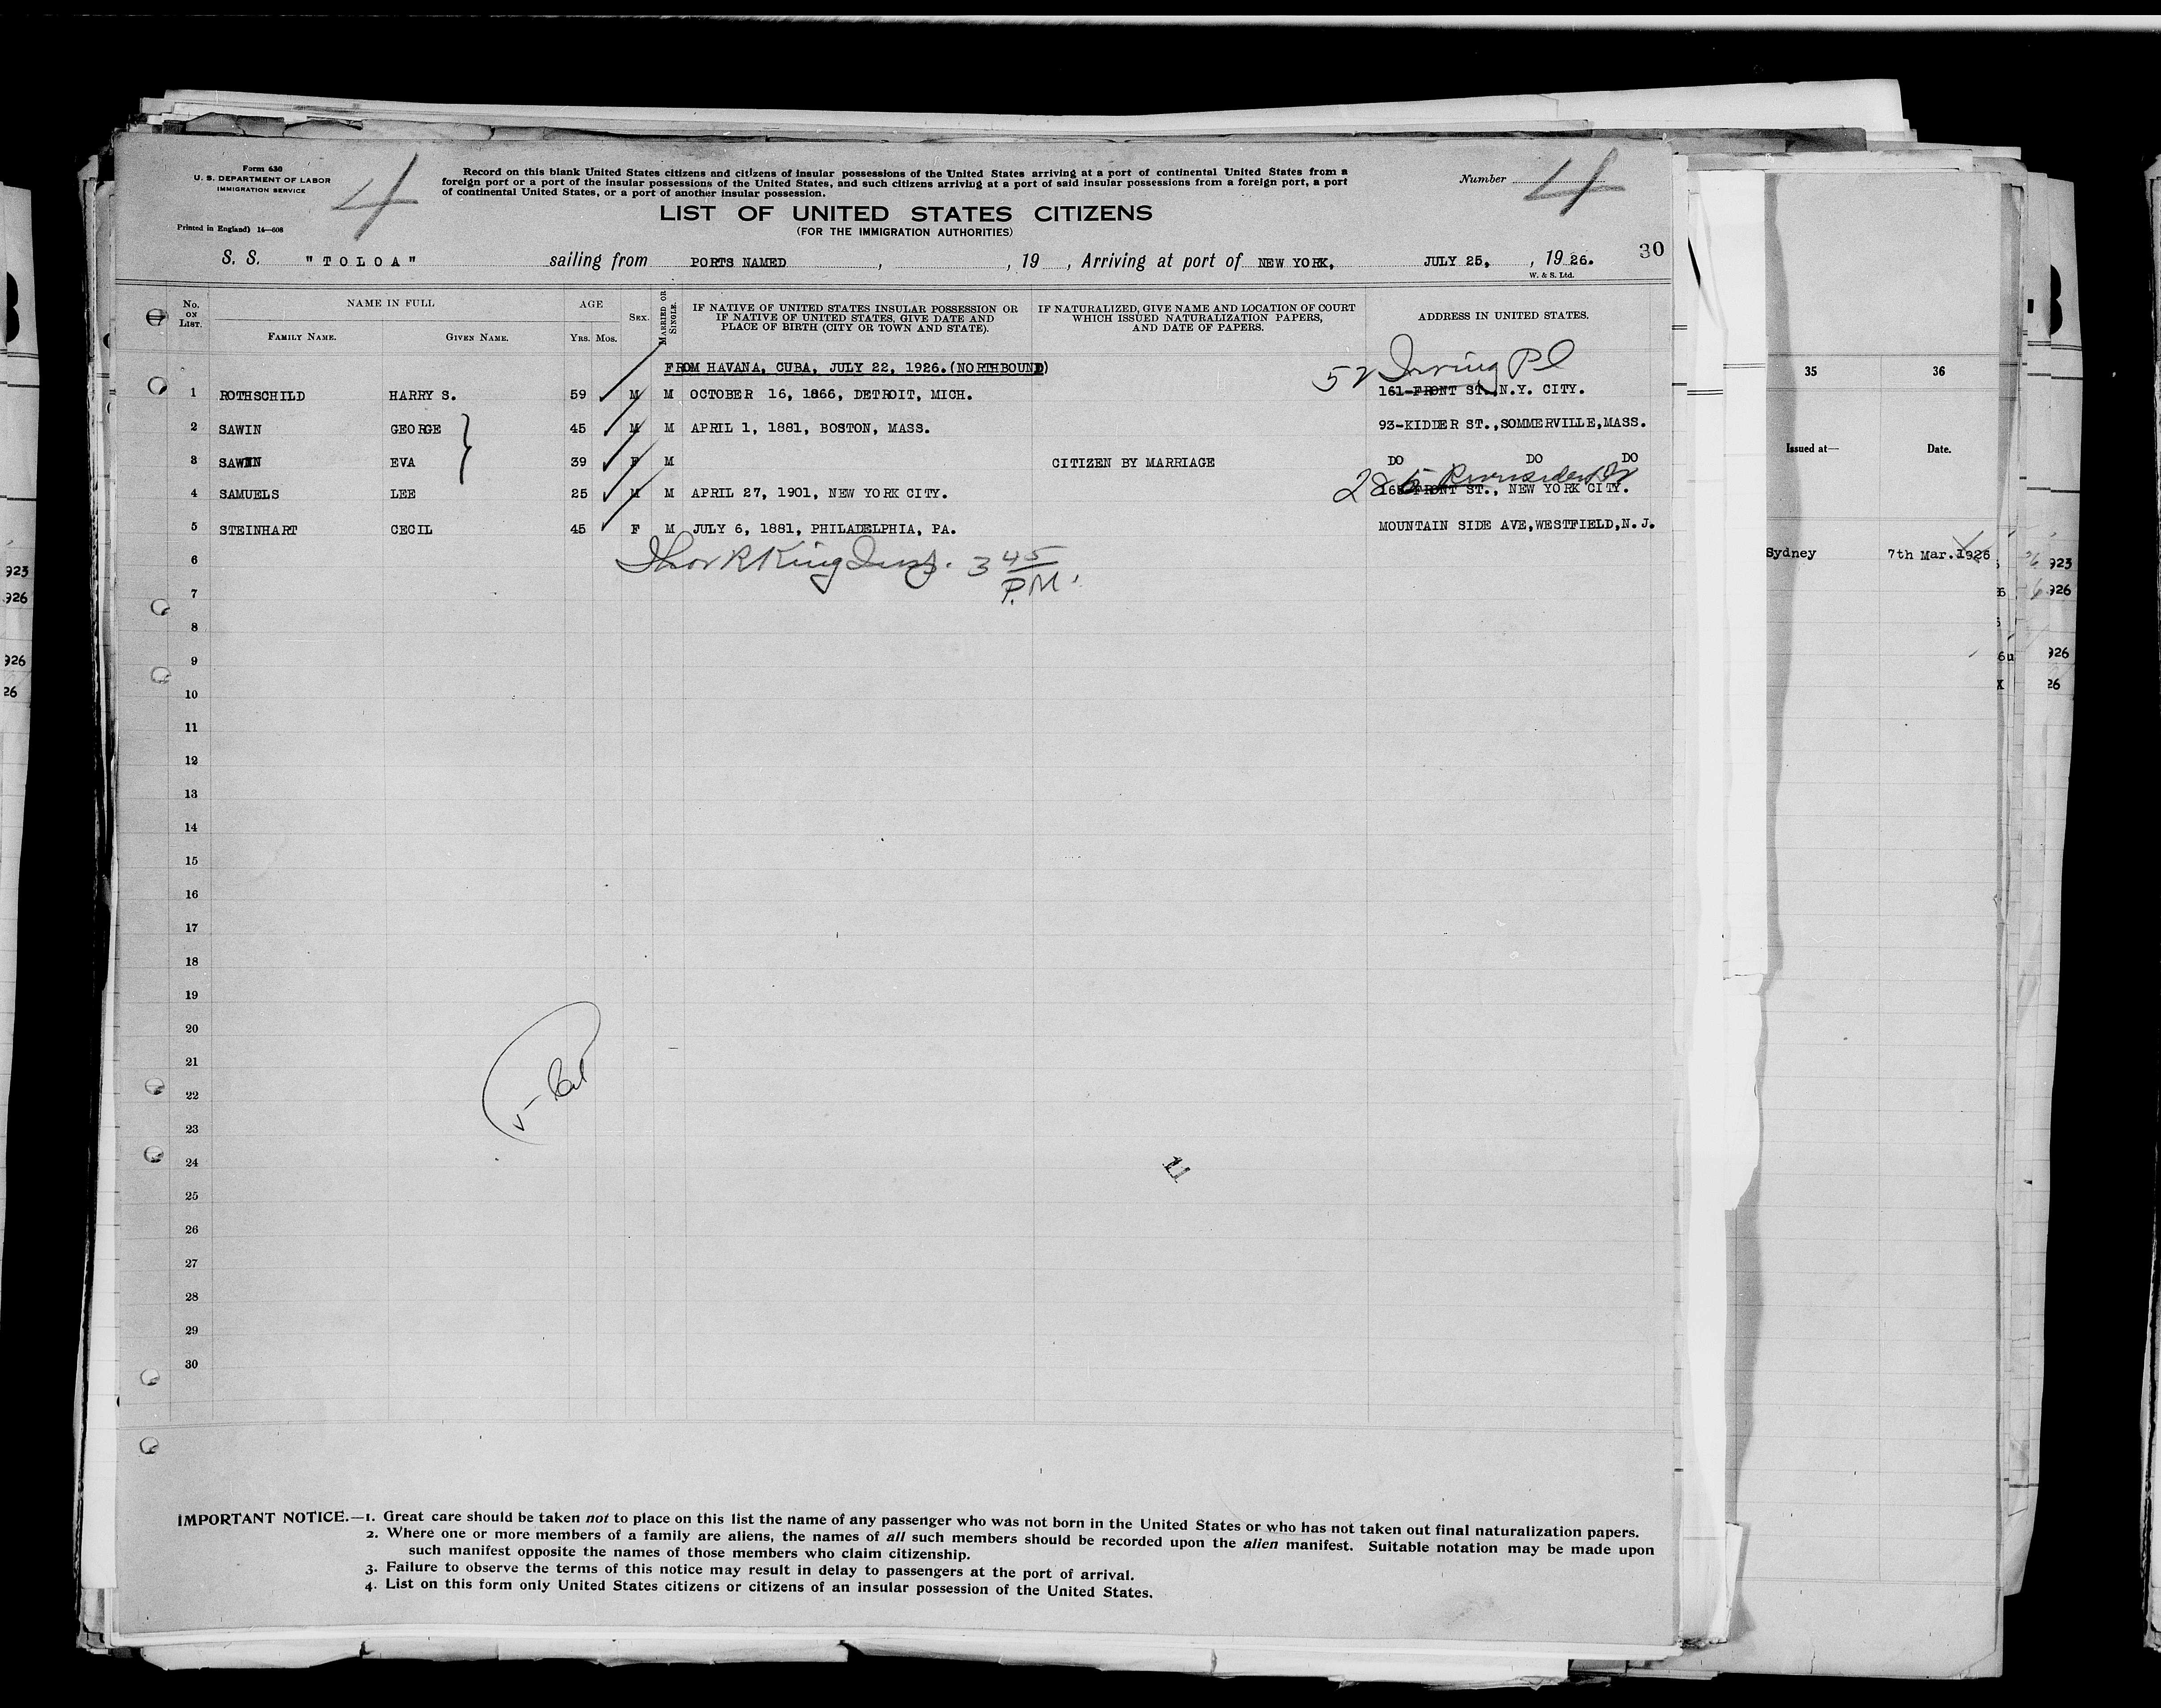 Form 630
U. S. DEPARTMENT OF LABOR
IMMIGRATION SERVICE
Printed in England) 14—608
4
Record on this blank United States citizens and citizens of insular possessions of the United States arriving at a port of continental United States from a
foreign port or a port of the insular possessions of the United States, and such citizens arriving at a port of said insular possessions from a foreign port, a port
of continental United States, or a port of another insular possession.
Number 4
LIST OF UNITED STATES CITIZENS
(FOR THE IMMIGRATION AUTHORITIES)
30
S. S. "TOLOA" sailing from PORTS NAMED, , 19 , Arriving at port of NEW YORK, JULY 25, , 1926.
W. & S. Ltd.
No. ON LIST. NAME IN FULL FAMILY NAME. GIVEN NAME. AGE Yrs. Mos. SEX. MARRIED OR SINGLE. IF NATIVE OF UNITED STATES INSULAR POSSESSION OR IF NATIVE OF UNITED STATES, GIVE DATE AND PLACE OF BIRTH (CITY OR TOWN AND STATE). IF NATURALIZED, GIVE NAME AND LOCATION OF COURT WHICH ISSUED NATURALIZATION PAPERS, AND DATE OF PAPERS. ADDRESS IN UNITED STATES.
FROM HAVANA, CUBA, JULY 22, 1926.(NORTHBOUND)
52 Irving Pl
1 ROTHSCHILD HARRY S. 59 M M OCTOBER 16, 1866, DETROIT, MICH. 161-FRONT ST., N.Y. CITY.
2 SAWIN GEORGE 45 M M APRIL 1, 1881, BOSTON, MASS. 93-KIDDER ST.,SOMMERVILLE,MASS.
3 SAWIN EVA 39 F M CITIZEN BY MARRIAGE DO DO DO
285 Riverside Dr
4 SAMUELS LEE 25 M M APRIL 27, 1901, NEW YORK CITY. FRONT ST., NEW YORK CITY.
5 STEINHART CECIL 45 F M JULY 6, 1881, PHILADELPHIA, PA. MOUNTAIN SIDE AVE,WESTFIELD,N.J.
6 R King Insp. 3 45
P.M.
7
8
9
10
11
12
13
14
15
16
17
18
19
20
21
22
23
24
25
26
27
28
29
30
IMPORTANT NOTICE.—1. Great care should be taken not to place on this list the name of any passenger who was not born in the United States or who has not taken out final naturalization papers.
2. Where one or more members of a family are aliens, the names of all such members should be recorded upon the alien manifest. Suitable notation may be made upon
such manifest opposite the names of those members who claim citizenship.
3. Failure to observe the terms of this notice may result in delay to passengers at the port of arrival.
4. List on this form only United States citizens or citizens of an insular possession of the United States.
35 36
Issued at— Date.
Sydney 7th Mar.1926
923
926
926
26
923
926
926
26